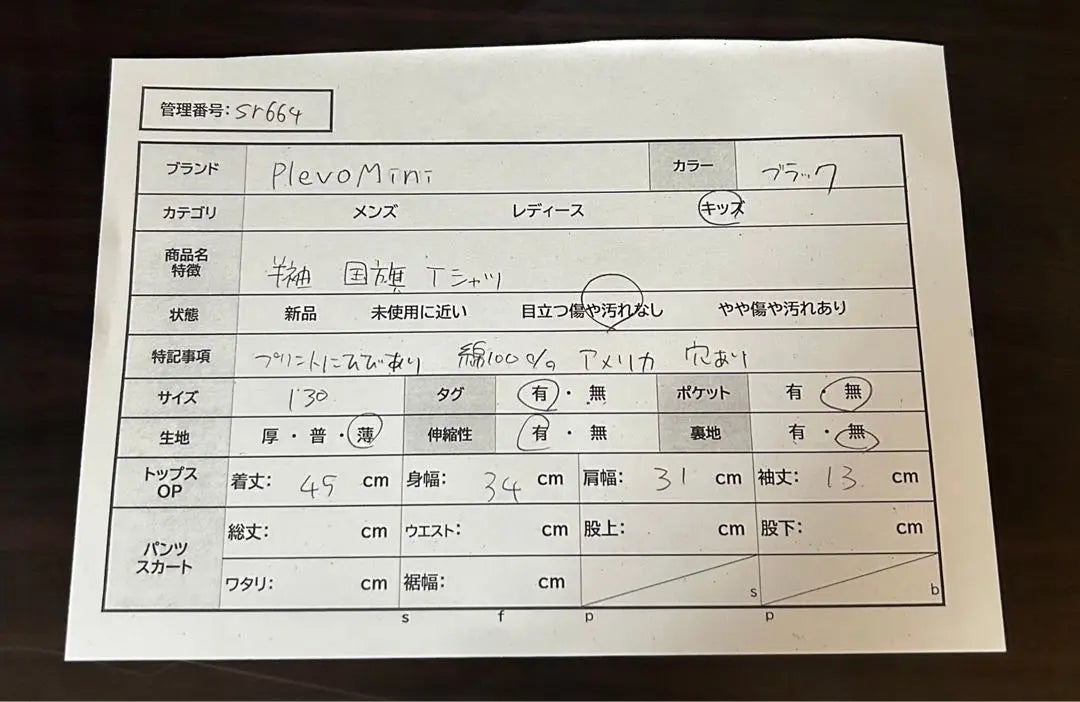 管理番号: sr664
ブランド PlevoMini カラー ブラック
カテゴリ メンズ レディース キッズ
商品名
特徴 半袖 国旗 Tシャツ
状態 新品 未使用に近い 目立つ傷や汚れなし やや傷や汚れあり
特記事項 プリントにひびあり 綿100% アメリカ 穴あり
サイズ 130 タグ 有・無 ポケット 有・無
生地 厚・普・薄 伸縮性 有・無 裏地 有・無
トップス
OP 着丈: 45 cm 身幅: 34 cm 肩幅: 31 cm 袖丈: 13 cm
パンツ
スカート 総丈: cm ウエスト: cm 股上: cm 股下: cm
ワタリ: cm 裾幅: cm s b
s f p p